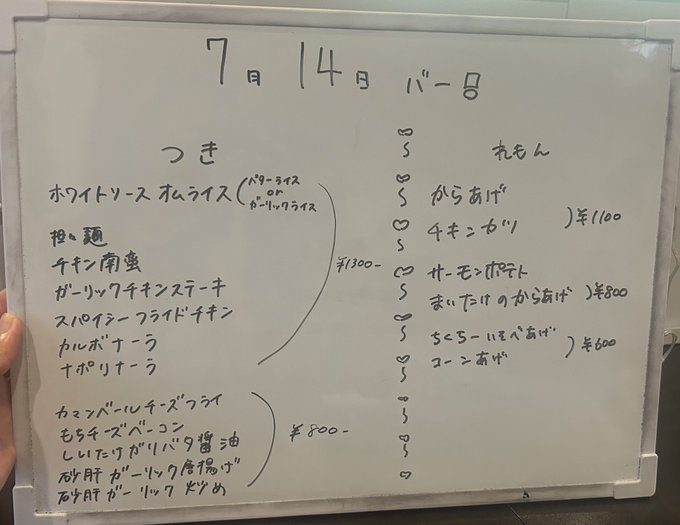 7日 14日 バー
つき
ホワイトソース オムライス (バターライス or ガーリックライス
担々麺
チキン南蛮
ガーリックチキンステーキ
スパイシーフライドチキン
カルボナーラ
ナポリナーラ
¥1300-
カマンベールチーズフライ
もちチーズベーコン
しいたけガリバタ醤油
砂肝ガーリック唐揚げ
砂肝ガーリック炒め
¥800-
れもん
からあげ
チキンカツ
)¥1100
サーモンポテト
まいたけのからあげ
)¥800
ちくちーいそべあげ
コーンあげ
)¥600